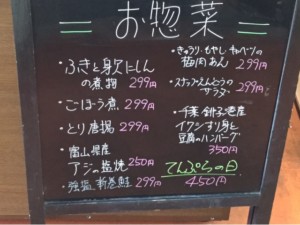 お惣菜
・ふきと身欠にしん
の煮物 299円
・ごぼう煮 299円
・とり唐揚 299円
・富山県産
アジの塩焼 250円
・強塩 新巻鮭 299円
・きゅうり・もやし キャベツの
梅肉あん 299円
・スナップえんどうの
サラダ 299円
・千葉 銚子港産
イワシすり身と
豆腐のハンバーグ
350円
てんぷらの日
450円